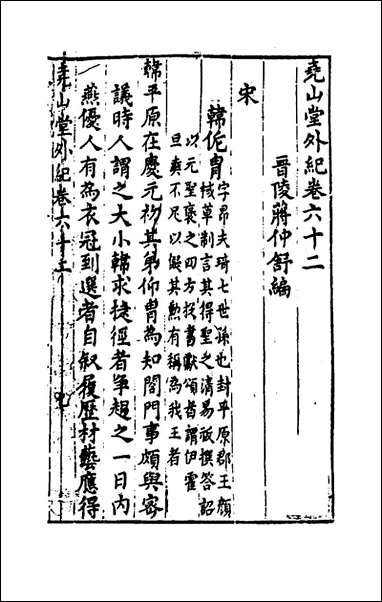 堯山堂外紀卷六十二
晉陵蔣仲舒編
宋
韓侂胄
字昂夫琦七世孫也封平原郡王顔
棫草制言其得聖之清易祓撰答詔
以元聖褒之四方投書獻頌者謂伊霍
旦奭不足以儗其勲有稱為我王者
韓平原在慶元初其弟仰胄為知閤門事頗與密
議時人謂之大小韓求捷徑者爭趨之一日內
燕優人有為衣冠到選者自叙履歷材藝應得
堯山堂外紀卷六十二